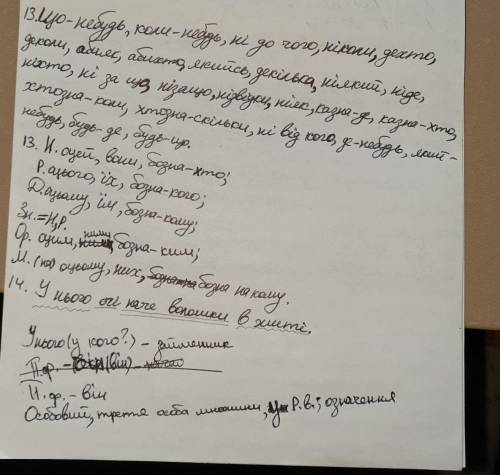 13. Що-небудь, коли-небудь, ні до чого, ніколи, дехто,
деколи, абияк, абихто, якийсь, декілька, ніякий, ніде,
ніхто, ні за що, нізащо, нізвідки, ніяк, казна-де, казна-хто,
хтозна-коли, хтозна-скільки, ні від кого, де-небудь, який-
небудь, будь-де, будь-що.
13. Н. оцей, вони, бозна-хто;
Р. оцього, їх, бозна-кого;
Д. оцьому, їм, бозна-кому;
Зн. = Н, Р.
Ор. оцим, ними, бозна-ким;
М. (на) оцьому, них, бозна на кому.
14. У нього очі наче волошки в житі.
У нього (у кого?) – займенник
П.ф. – (він)
П.ф. – він
Особовий, третя особа множини, у Р.в.; означення